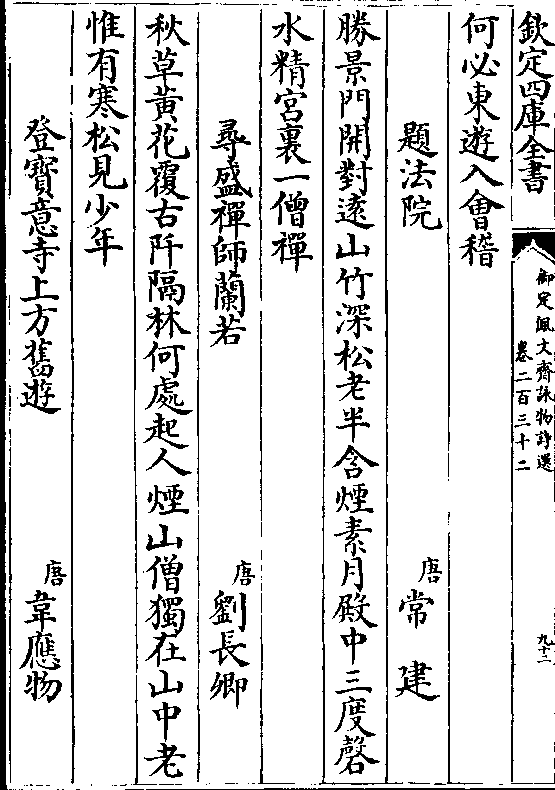 欽定四庫全書
御定佩文齋詠物詩選
卷二百三十二
九十二
何必東遊入會稽
題法院 唐 常建
勝景門開對遠山竹深松老半含煙素月殿中三度磬
水精宮裏一僧禪
尋盛禪師蘭若 唐 劉長卿
秋草黃花覆古阡隔林何處起人煙山僧獨在山中老
惟有寒松見少年
登寶意寺上方舊遊 唐 韋應物